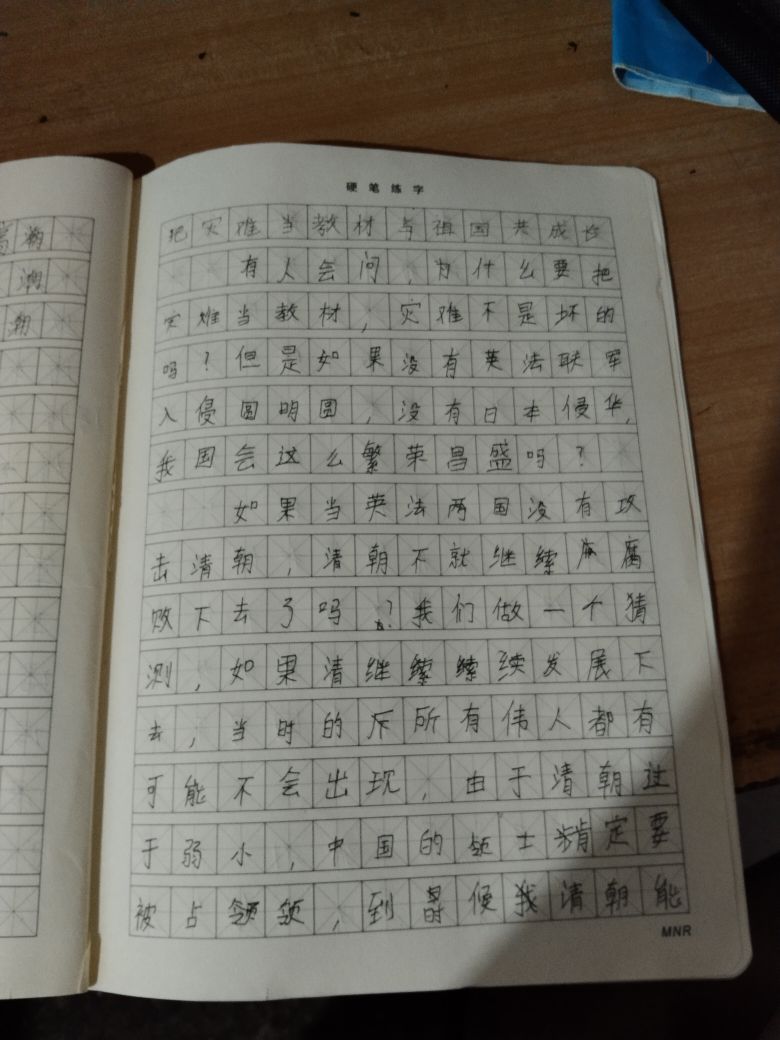 硬笔练字
把灾难当教材与祖国共成长
有人会问，为什么要把
灾难当教材，灾难不是坏的
吗？但是如果没有英法联军
入侵圆明圆，没有日本侵华，
我国会这么繁荣昌盛吗？
如果当英法两国没有攻
击清朝，清朝不就继续腐
败下去了吗？我们做一个猜
测，如果清继续发展下
去，当时的所有伟人都有
可能不会出现，由于清朝过
于弱小，中国的领土肯定要
被占领，到时候我清朝能
MNR
瀚
润
朝